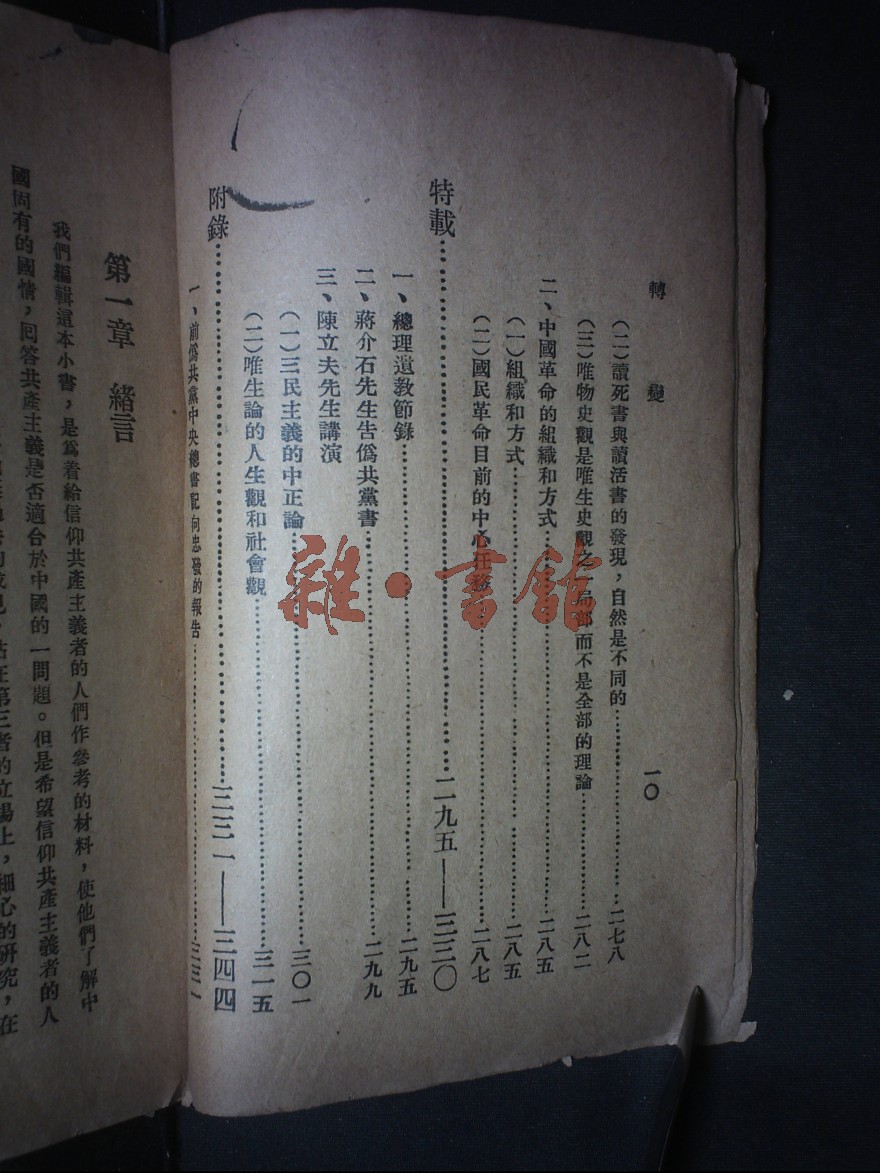 轉變 一〇
(二)讀死書與讀活書的發現,自然是不同的……二七八
(三)唯物史觀是唯生史觀之一局部而不是全部的理論……二八二
二、中國革命的組織和方式……二八五
(一)組織和方式……二八五
(二)國民革命目前的中心任務……二八七
特載……二九五——三三〇
一、總理遺教節錄……二九五
二、蔣介石先生告僞共黨書……二九九
三、陳立夫先生講演
(一)三民主義的中正論……三〇一
(二)唯生論的人生觀和社會觀……三一五
附錄……三三一——三四四
一、前僞共黨中央總書記向忠發的報告……三三一
雜·書館
第一章 緒言
我們編輯這本小書,是爲着給信仰共產主義者的人們作參考的材料,使他們了解中
國固有的國情,回答共產主義是否適合於中國的一問題。但是希望信仰共產主義者的人
成見,站在第三者的立場上,細心的研究,在